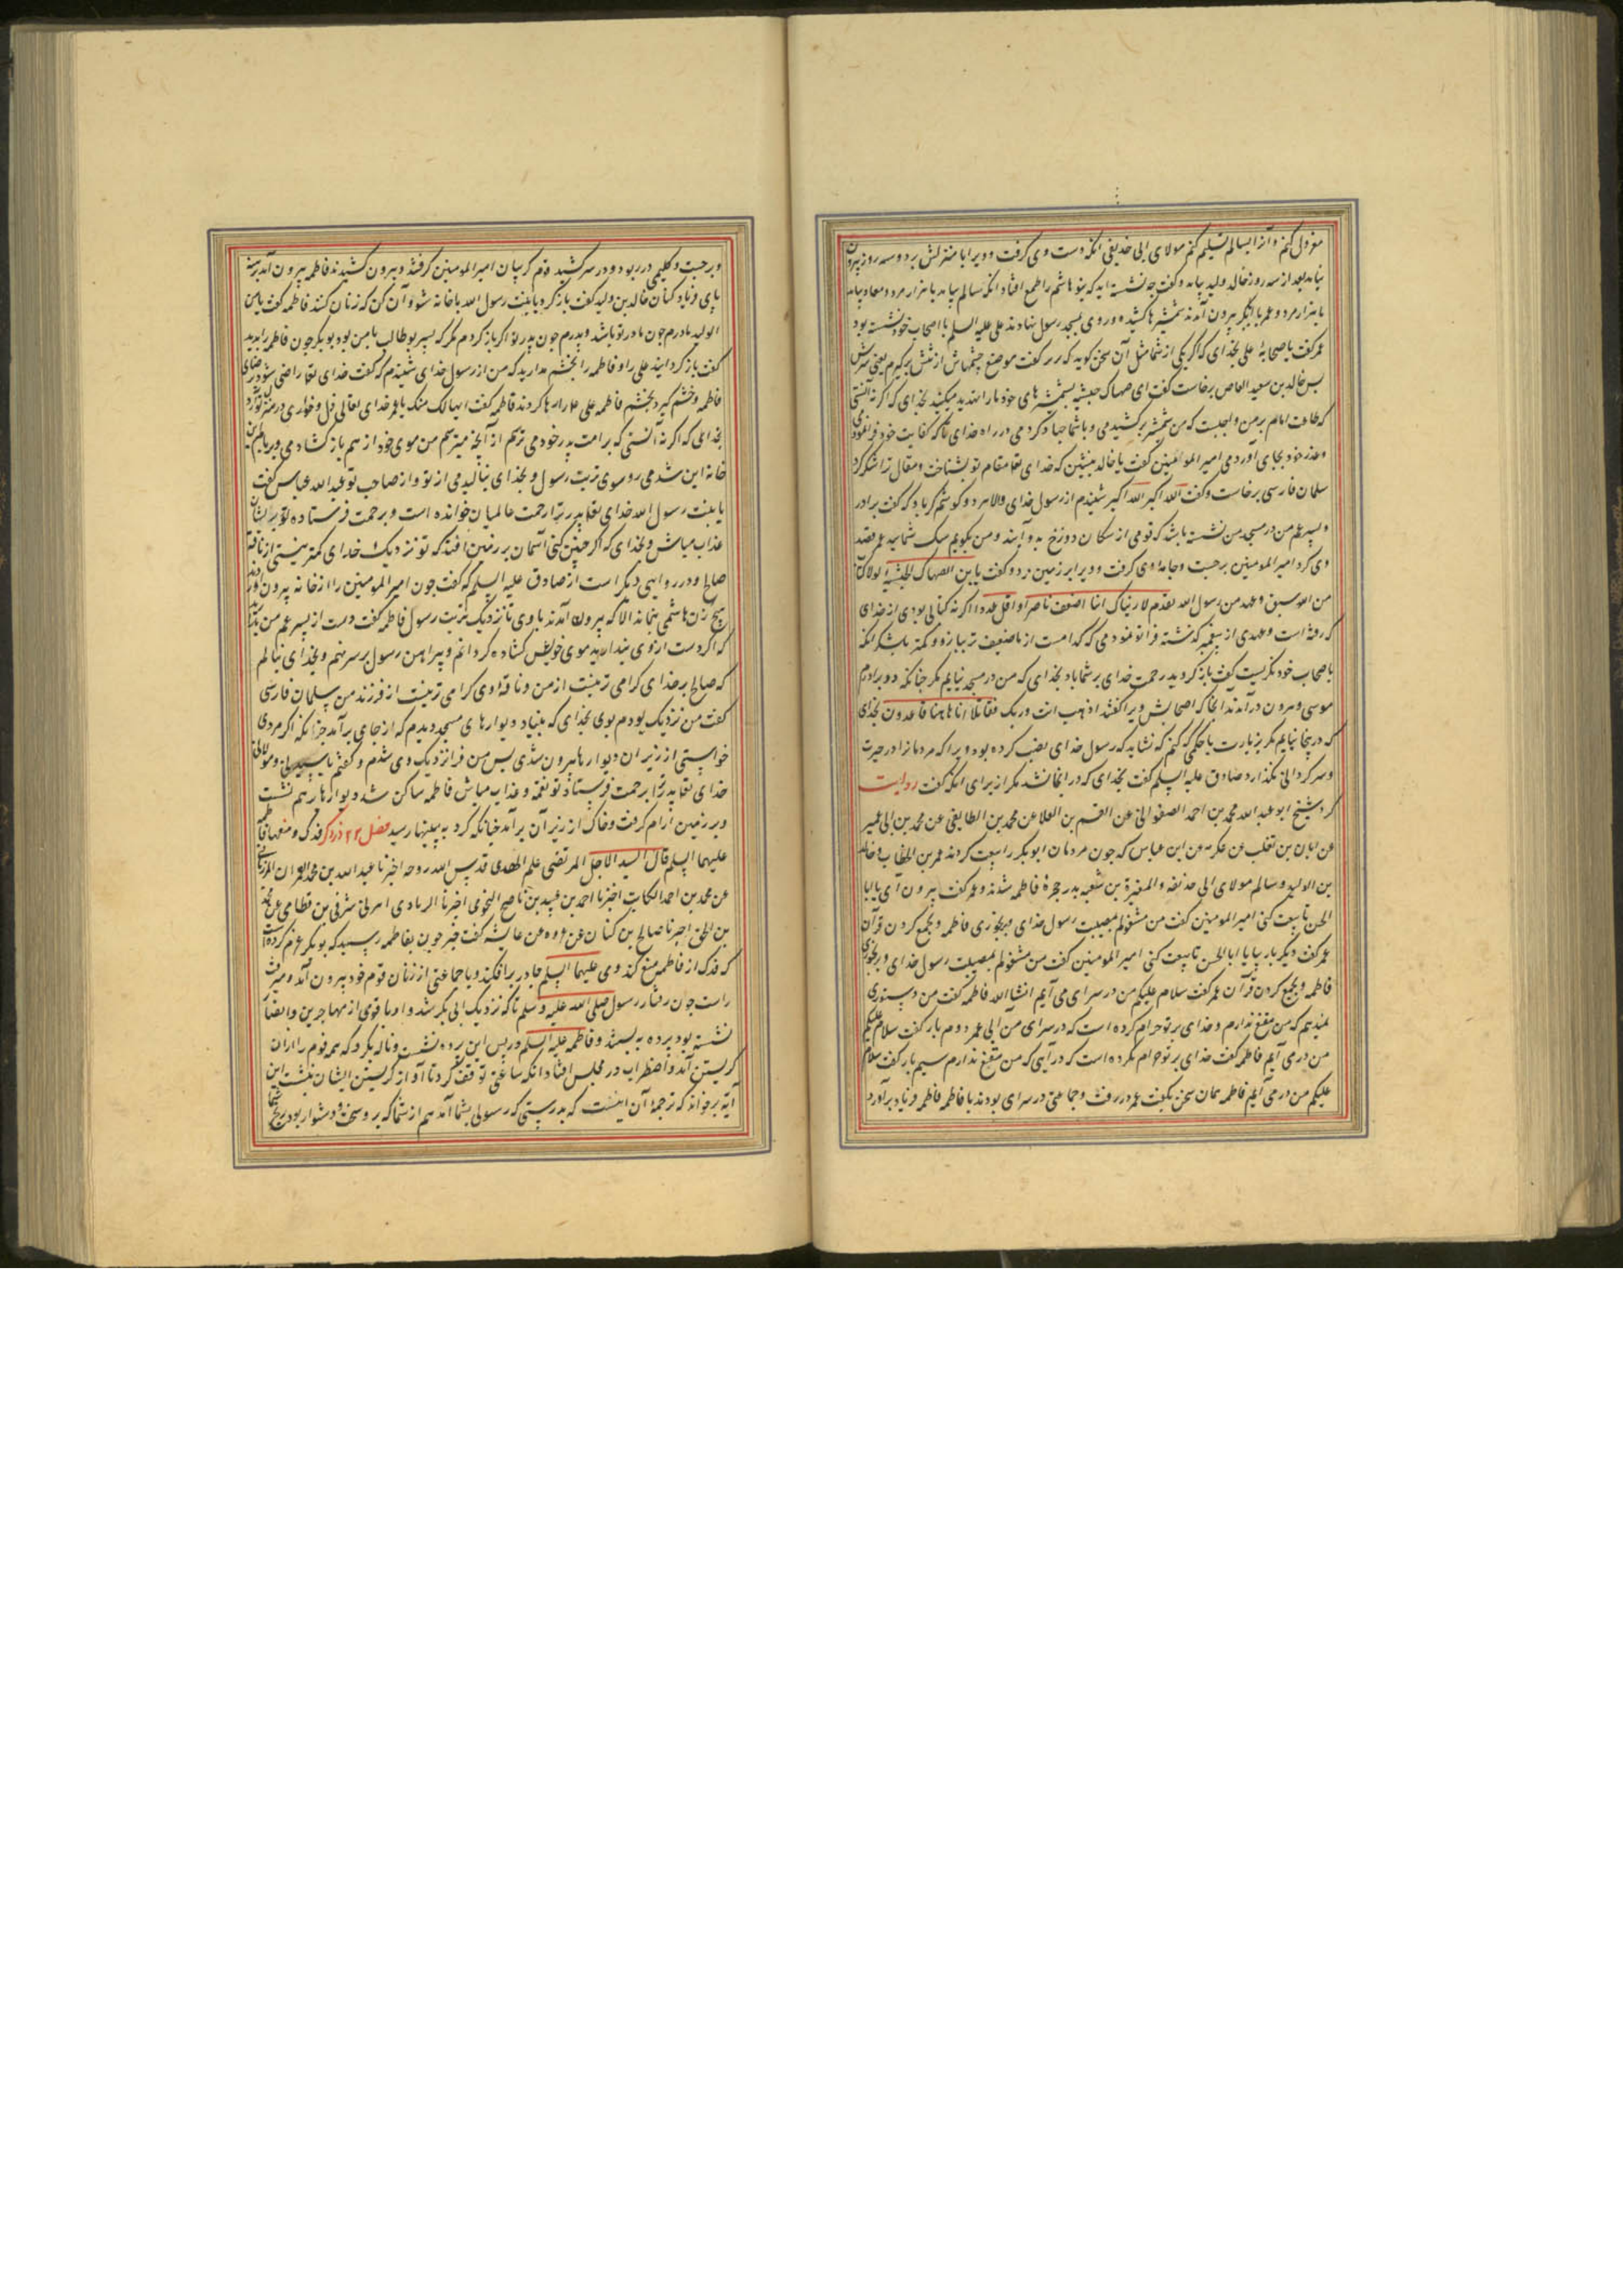 معزول کنم و آنرا بسالم تسلیم کنم مولای ابی حذیفه انکه دست وی کرفت و ویرا با منزلش برد و سه روز بیرون
نیامد بعد از سه روز خالد ولید بیامد و کفت چه نشسته اید که بنو هاشم را طمع افتاد انکه سالم بیامد با هزار مرد و معاذ بیامد
با هزار مرد و عمر با ابوبکر بیرون آمدند شمشیرها کشیده و روی بمسجد رسول نهادند علی علیه السلم با اصحاب خود نشسته بود
عمر کفت یا صحابهٔ علی بخدای که اکر یکی از شما مثل آن سخن کوید که کفت موضع چشمهاش از تنش برکیرم یعنی سرش
پس خالد بن سعید العاص برخاست کفت ای صهاک حبشیه بشمشیرهای خود ما را تهدید میکنید بخدای که اکر نه آنستی
که طاعت امام بر من واجبست که من شمشیر برکشیدمی و با شما جهاد کردمی در راه خدای تا که کفایت خود
و عذر خود بجای آوردمی امیر المومنین کفت یا خالد بنشین که خدای تعا مقام تو بشناخت و مقال ترا شکر کرد
سلمان فارسی برخاست و کفت الله اکبر الله اکبر شنیدم از رسول خدای والا هر دو کوشم کر باد که کفت برادر
و پسر عم من در مسجد من نشسته باشد که قومی از سکان دوزخ به و آیند و من نکویم شک شمایید عمر قصد
وی کرد امیر المومنین برجست و جامهٔ وی کرفت و ویرا بر زمین زد و کفت یا بن الصهاک الحبشیه لولا کتاب
من الله سبق و عهد من رسول الله تقدم لاریتک اینا اضعف ناصرا و اقل عددا اکر نه کتابی بودی از خدای
که رفته است و عهدی از پیغمبر که نشسته فرا تو نمودمی که کدامست از ما ضعیف تر بیازو و کمتر بلشکر انکه
باصحاب خود نکریست کفت باز کردید رحمت خدای بر شما باد بخدای که من در مسجد نیایم مکر چنانکه دو برادرم
موسی و هرون در آمدند انجا که اصحابش ویرا کفتند اذهب انت و ربک فقاتلا انا هاهنا قاعدون بخدای
که در اینجا نیایم مکر بزیارت یا حکمی کنم که نشاید که رسول خدای نصب کرده بود ویرا که مردمانرا در حیرت
و سر کردانی نکذارد صادق علیه السلم کفت بخدای که در انجا نشد مکر از برای انکه کفت روایت
کرد شیخ ابو عبد الله محمد بن احمد الصفوانی عن القسم بن العلا عن محمد بن الطایفی عن محمد بن ابی عمیر
عن ابان بن تغلب عن عکرمه عن ابن عباس که چون مردمان ابوبکر را بیعت کردند عمر بن الخطاب و خالد
بن الولید و سالم مولای ابی حذیفه و المغیرة بن شعبه بدر حجرهٔ فاطمه شدند و عمر کفت بیرون آی یا ابا
الحسن تا بیعت کنی امیر المومنین کفت من مشغولم بمصیبت رسول خدای و برنجوری فاطمه و بجمع کردن قرآن
عمر کفت دیکر بار بیا یا ابا الحسن تا بیعت کنی امیر المومنین کفت من مشغولم بمصیبت رسول خدای و رنجوری
فاطمه و بجمع کردن قرآن عمر کفت سلام علیکم من در سرای می آیم انشاالله فاطمه کفت من دستوری
نمیدهم که من مقنع ندارم و خدای بر تو حرام کرده است که در سرای من آیی عمر دوم بار کفت سلام علیکم
من در می آیم فاطمه کفت خدای بر تو حرام کرده است که درآیی که من مقنع ندارم سیم بار کفت سلام
علیکم من در می آیم فاطمه همان سخن بکفت عمر در رفت و جماعتی در سرای بودند با فاطمه فاطمه فریاد برآورد
و برجست و کلیمی در ربود و در سر کشید و کریبان امیر المومنین کرفتند و بیرون کشیدند فاطمه بیرون آمد برهنه
پای فریاد کنان خالد بن ولید کفت باز کرد یا بنت رسول الله با خانه شو و آن کن که زنان کنند فاطمه کفت یا بن
الولید مادرم چون مادر تو باشد و پدرم چون پدر تو اکر باز کردم مکر که پسر بو طالب با من بود بوبکر چون فاطمه را بدید
کفت باز کردانید علی را و فاطمه را بخشم مدارید که من از رسول خدای شنیدم که کفت خدای تعا راضی شود برضای
فاطمه و خشم کیرد بخشم فاطمه علی را رها کردند فاطمه کفت ایها لک منک یا عمر خدای تعالی ذل و خواری در
بخدایی که اکر نه آنستی که بر امت پدر خود می ترسم از آنچه میترسم من موی خود از هم باز کشادمی و
خانه این شدمی روسوی تربت رسول و بخدای بنالیدمی از تو و از صاحب تو عبد الله عباس کفت
یا بنت رسول الله خدای تعا پدر ترا رحمت عالمیان خوانده است و برحمت فرستاده تو بر ایشان
عذاب مباش و بخدای که اکر چنین کنی آسمان بر زمین افتد که تو نزدیک خدای کمتر نیستی از ناقهٔ
صالح و در روایتی دیکر است از صادق علیه السلم که کفت چون امیر المومنین را از خانه بیرون آوردند
هیچ زن هاشمی نماند الا که بیرون آمدند با وی تا نزدیک تربت رسول فاطمه کفت دست از پسر عم من بدارید
که اکر دست از وی ندارید موی خویش کشاده کردانم و پیراهن رسول بر سر نهم و بخدای بنالم
که صالح بر خدای کرامی تر نیست از من و ناقهٔ وی کرامی تر نیست از فرزند من سلمان فارسی
کفت من نزدیک بودم بوی بخدای که بنیاد دیوارهای مسجد دیدم که از جای برآمد چنانکه اکر مردی
خواستی از زیر ان دیوارها بیرون شدی پس من فرا نزدیک وی شدم و کفتم یا سیدتی و مولاتی
خدای تعا پدر ترا برحمت فرستاد تو نقمه و عذاب مباش فاطمه ساکن شد دیوارها بر هم نشست
و بر زمین آرام کرفت و خاک از زیر آن برآمد چنانکه کرد به بینیها رسید فصل ۲۲ ذکر فدک و منعها فاطمه
علیهما السلم قال السید الاجل المرتضی علم الهدی قدس الله روحه اخبرنا عبد الله بن محمد العمران المرزبانی
عن محمد بن احمد الکاتب اخبرنا احمد بن عبید بن ناصح النحوی اخبرنا الزیادی شرقی بن قطامی عن محمد
بن اسحق اخبرنا صالح بن کیسان عن عروه عن عایشه کفت خبر چون بفاطمه رسید که بوبکر عزم کرده است
که فدک از فاطمه منع کند وی علیها السلم چادر برافکند و با جماعتی از زنان قوم خود بیرون آمد و میرفت
راست چون رفتار رسول صلی الله علیه و سلم تا که نزدیک ابی بکر شد و او با قومی از مهاجرین و انصار
نشسته بود پرده به بستند و فاطمه علیه السلم در پس این پرده نشست و ناله بکرد که همه قوم را ازان
کریستن آمد و اضطراب در مجلس افتاد انکه ساعتی توقف کرد تا آواز کریستن ایشان بنشست این
آیه برخواند که ترجمهٔ آن اینست که بدرستی که رسولی بشما آمد هم از شما که بر وی سخت و دشوار بود رنج شما